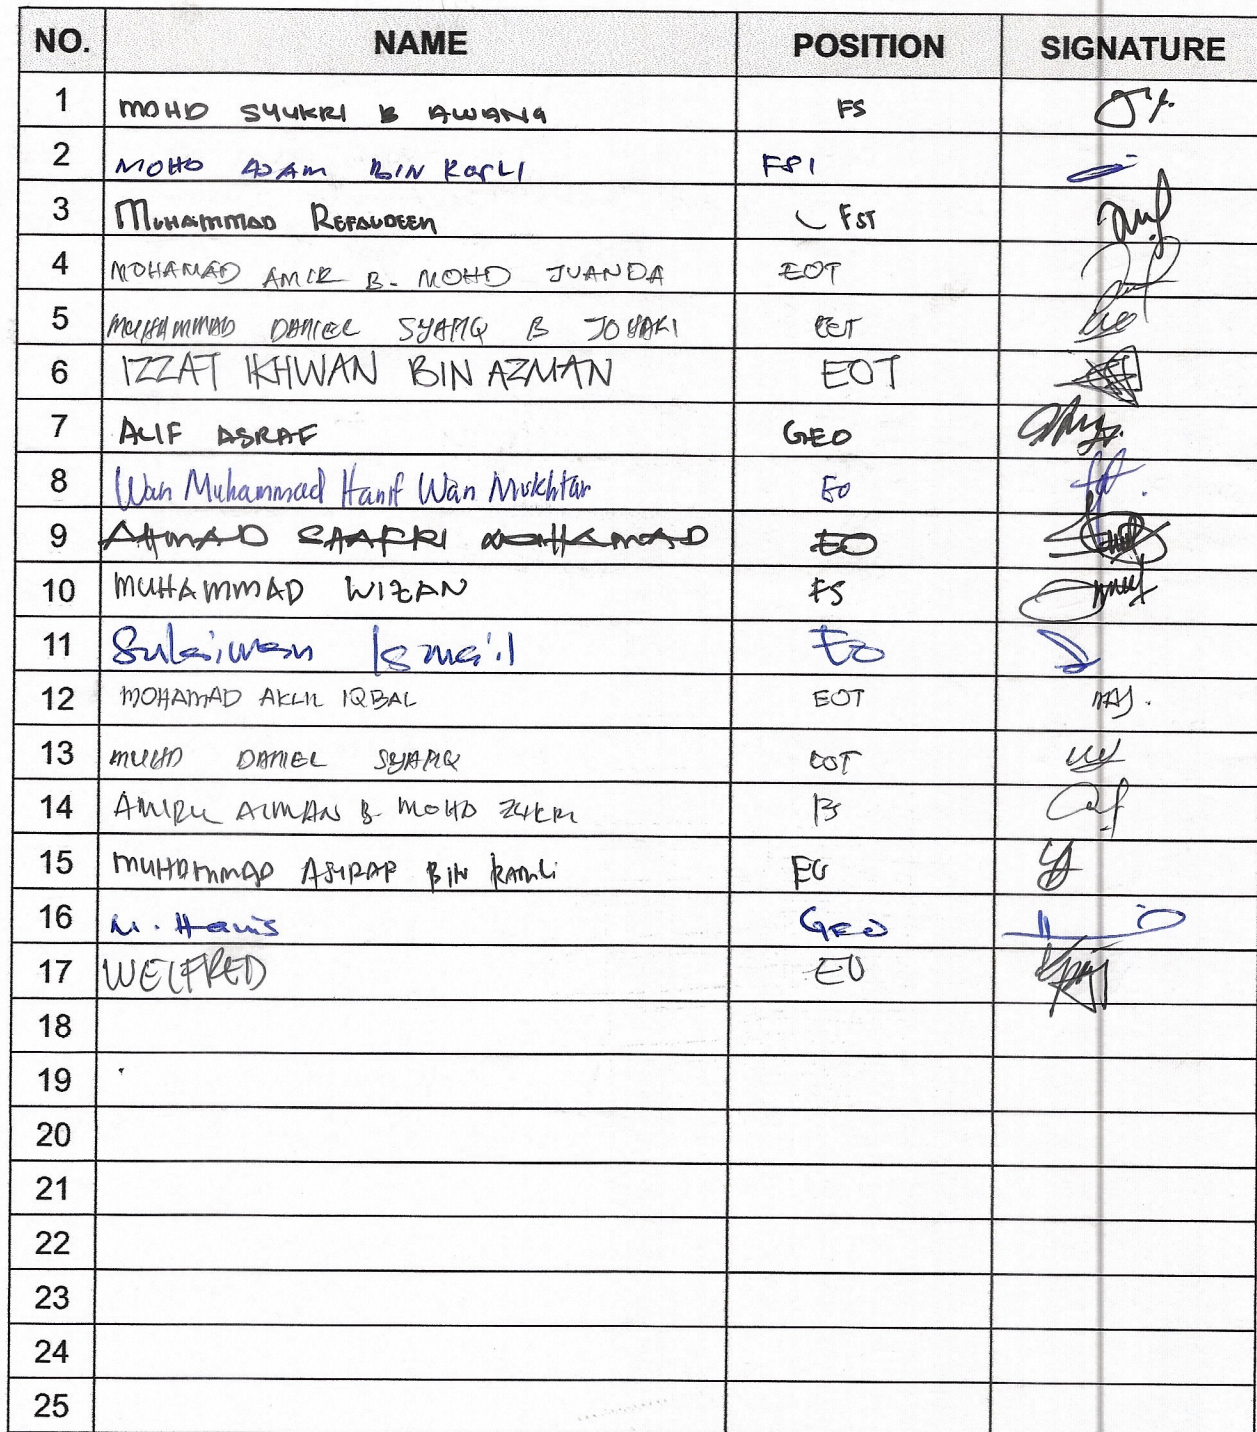 NO. NAME POSITION SIGNATURE
1 MOHD SYUKRI B AWANG FS
2 MOHD ADAM BIN ROSLI FSI
3 MUHAMMAD REFAUDEEN FST
4 MOHAMAD AMIR B. MOHD JUANDA EOT
5 MUHAMMAD DANIEL SYAFIQ B JOHARI EOT
6 IZZAT IKHWAN BIN AZMAN EOT
7 ALIF ASRAF GEO
8 Wan Muhammad Hanif Wan Mukhtar EO
9 AHMAD MOHAMAD EO
10 MUHAMMAD WIZAN FS
11 Sulaiman Ismail EO
12 MOHAMAD AKLIL IQBAL EOT
13 MUHD DANIEL SYAFIQ EOT
14 AMIRUL AIMAN B. MOHD ZUKRI FS
15 MUHAMMAD ASYRAF BIN RAMLI EO
16 M. Haris GEO
17 WELFRED EO
18
19
20
21
22
23
24
25